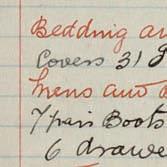 Bedding a
Covers 31
mens and
7 pair Boots
6 drawe